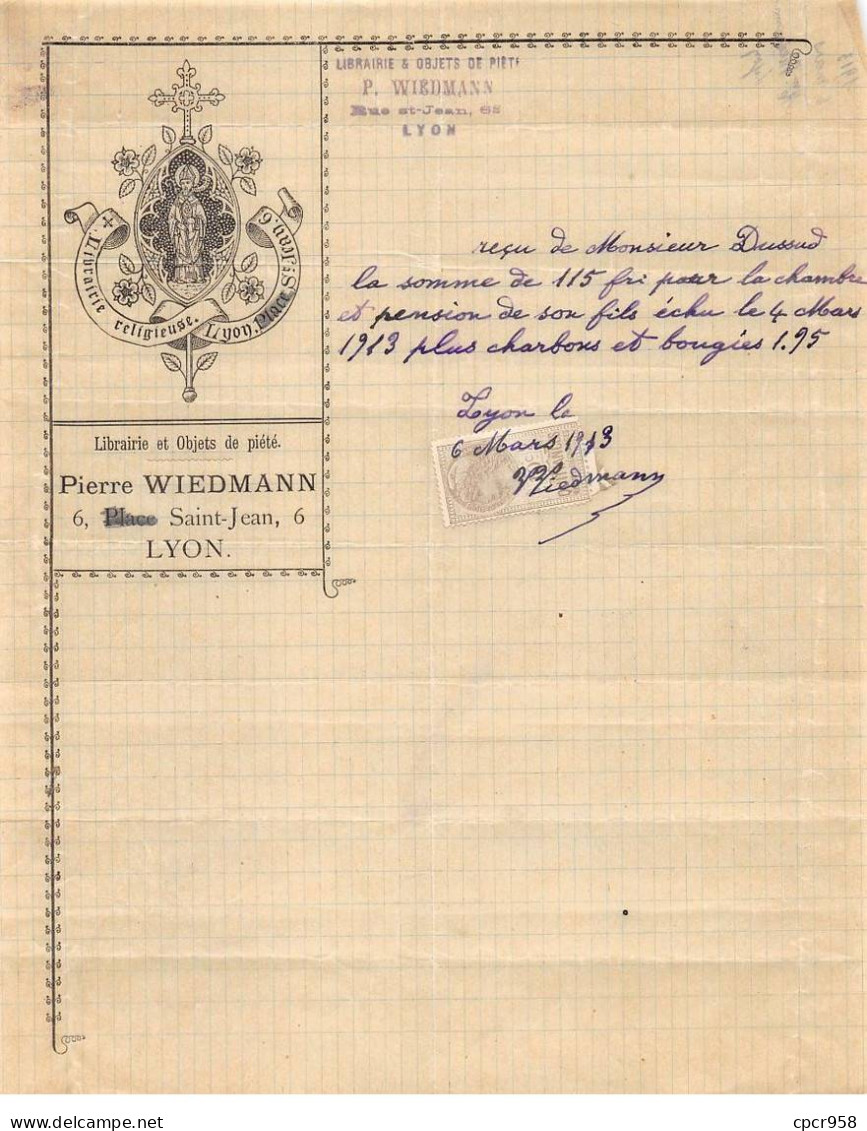 LIBRAIRIE & OBJETS DE PIÉTÉ
P. WIEDMANN
Rue St-Jean, 68
LYON
✝. Librairie religieuse. Lyon, Place St Jean, 6
Librairie et Objets de piété.
Pierre WIEDMANN
6, Place Saint-Jean, 6
LYON.
reçu de Monsieur Dussud
la somme de 115 frs pour la chambre
et pension de son fils échu le 4 Mars
1913 plus charbons et bougies 1.95
Lyon le
6 Mars 1913
Wiedmann
cpcr958